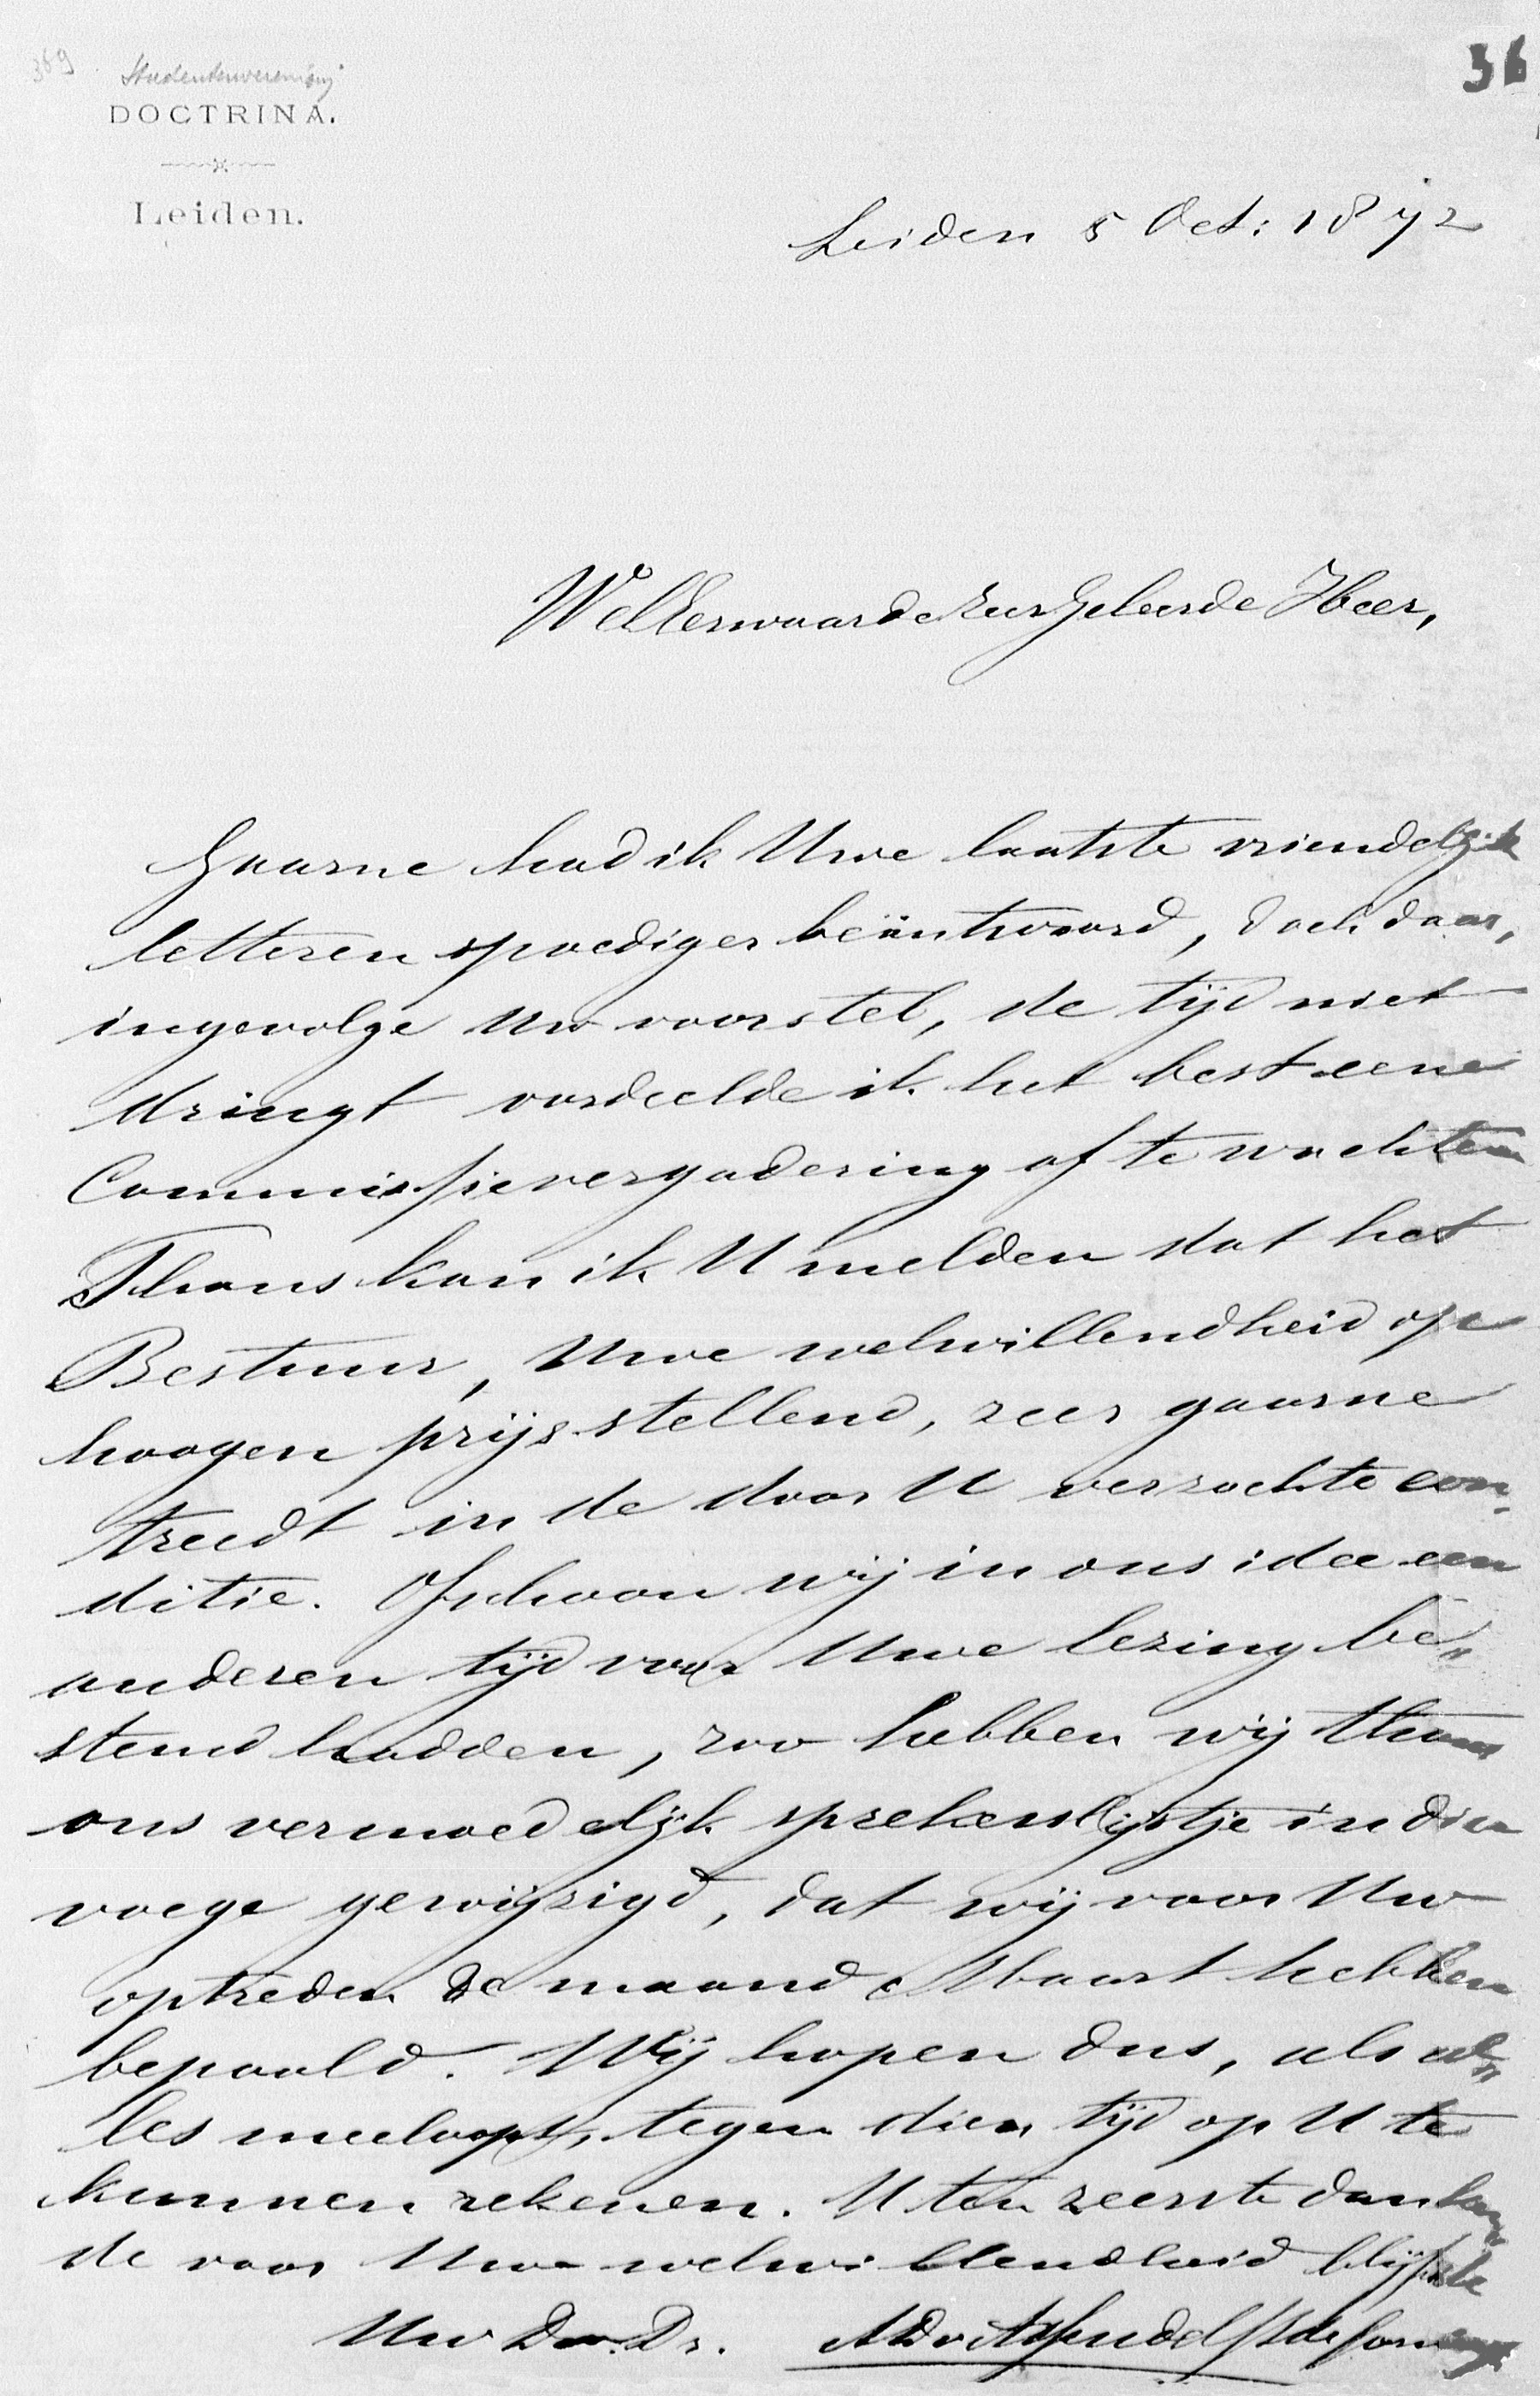 369
Studentenvereniging
DOCTRINA.
Leiden.
36
Leiden 5 Oct: 1872
WelEerwaarde zeer geleerde Heer,
Gaarne had ik Uwe laatste vriendelijk
letteren spoediger beäntwoord, doch daar,
ingevolge Uw voorstel, de tijd niet
dringt oordeelde ik het best eene
Commissievergadering af te wachten
Thans kan ik U melden dat het
Bestuur, Uwe welwillendheid op
hoogen prijs stellend, zeer gaarne
treedt in de door U verzochte con-
ditie. Ofschoon wij in ons idee een
anderen tijd voor Uwe lezing be„
stemd hadden, zoo hebben wij thans
ons vermoedelijk sprekerslijstje in dier
voege gewijzigd, dat wij voor Uw
optreden de maand Maart hebben
bepaald. Wij hopen dus, als al„
les meeloopt, tegen dien tijd op U te
kunnen rekenen. U ten zeerste danken
de voor Uwe welwillendheid blijf ik
Uw Dw. Dr.